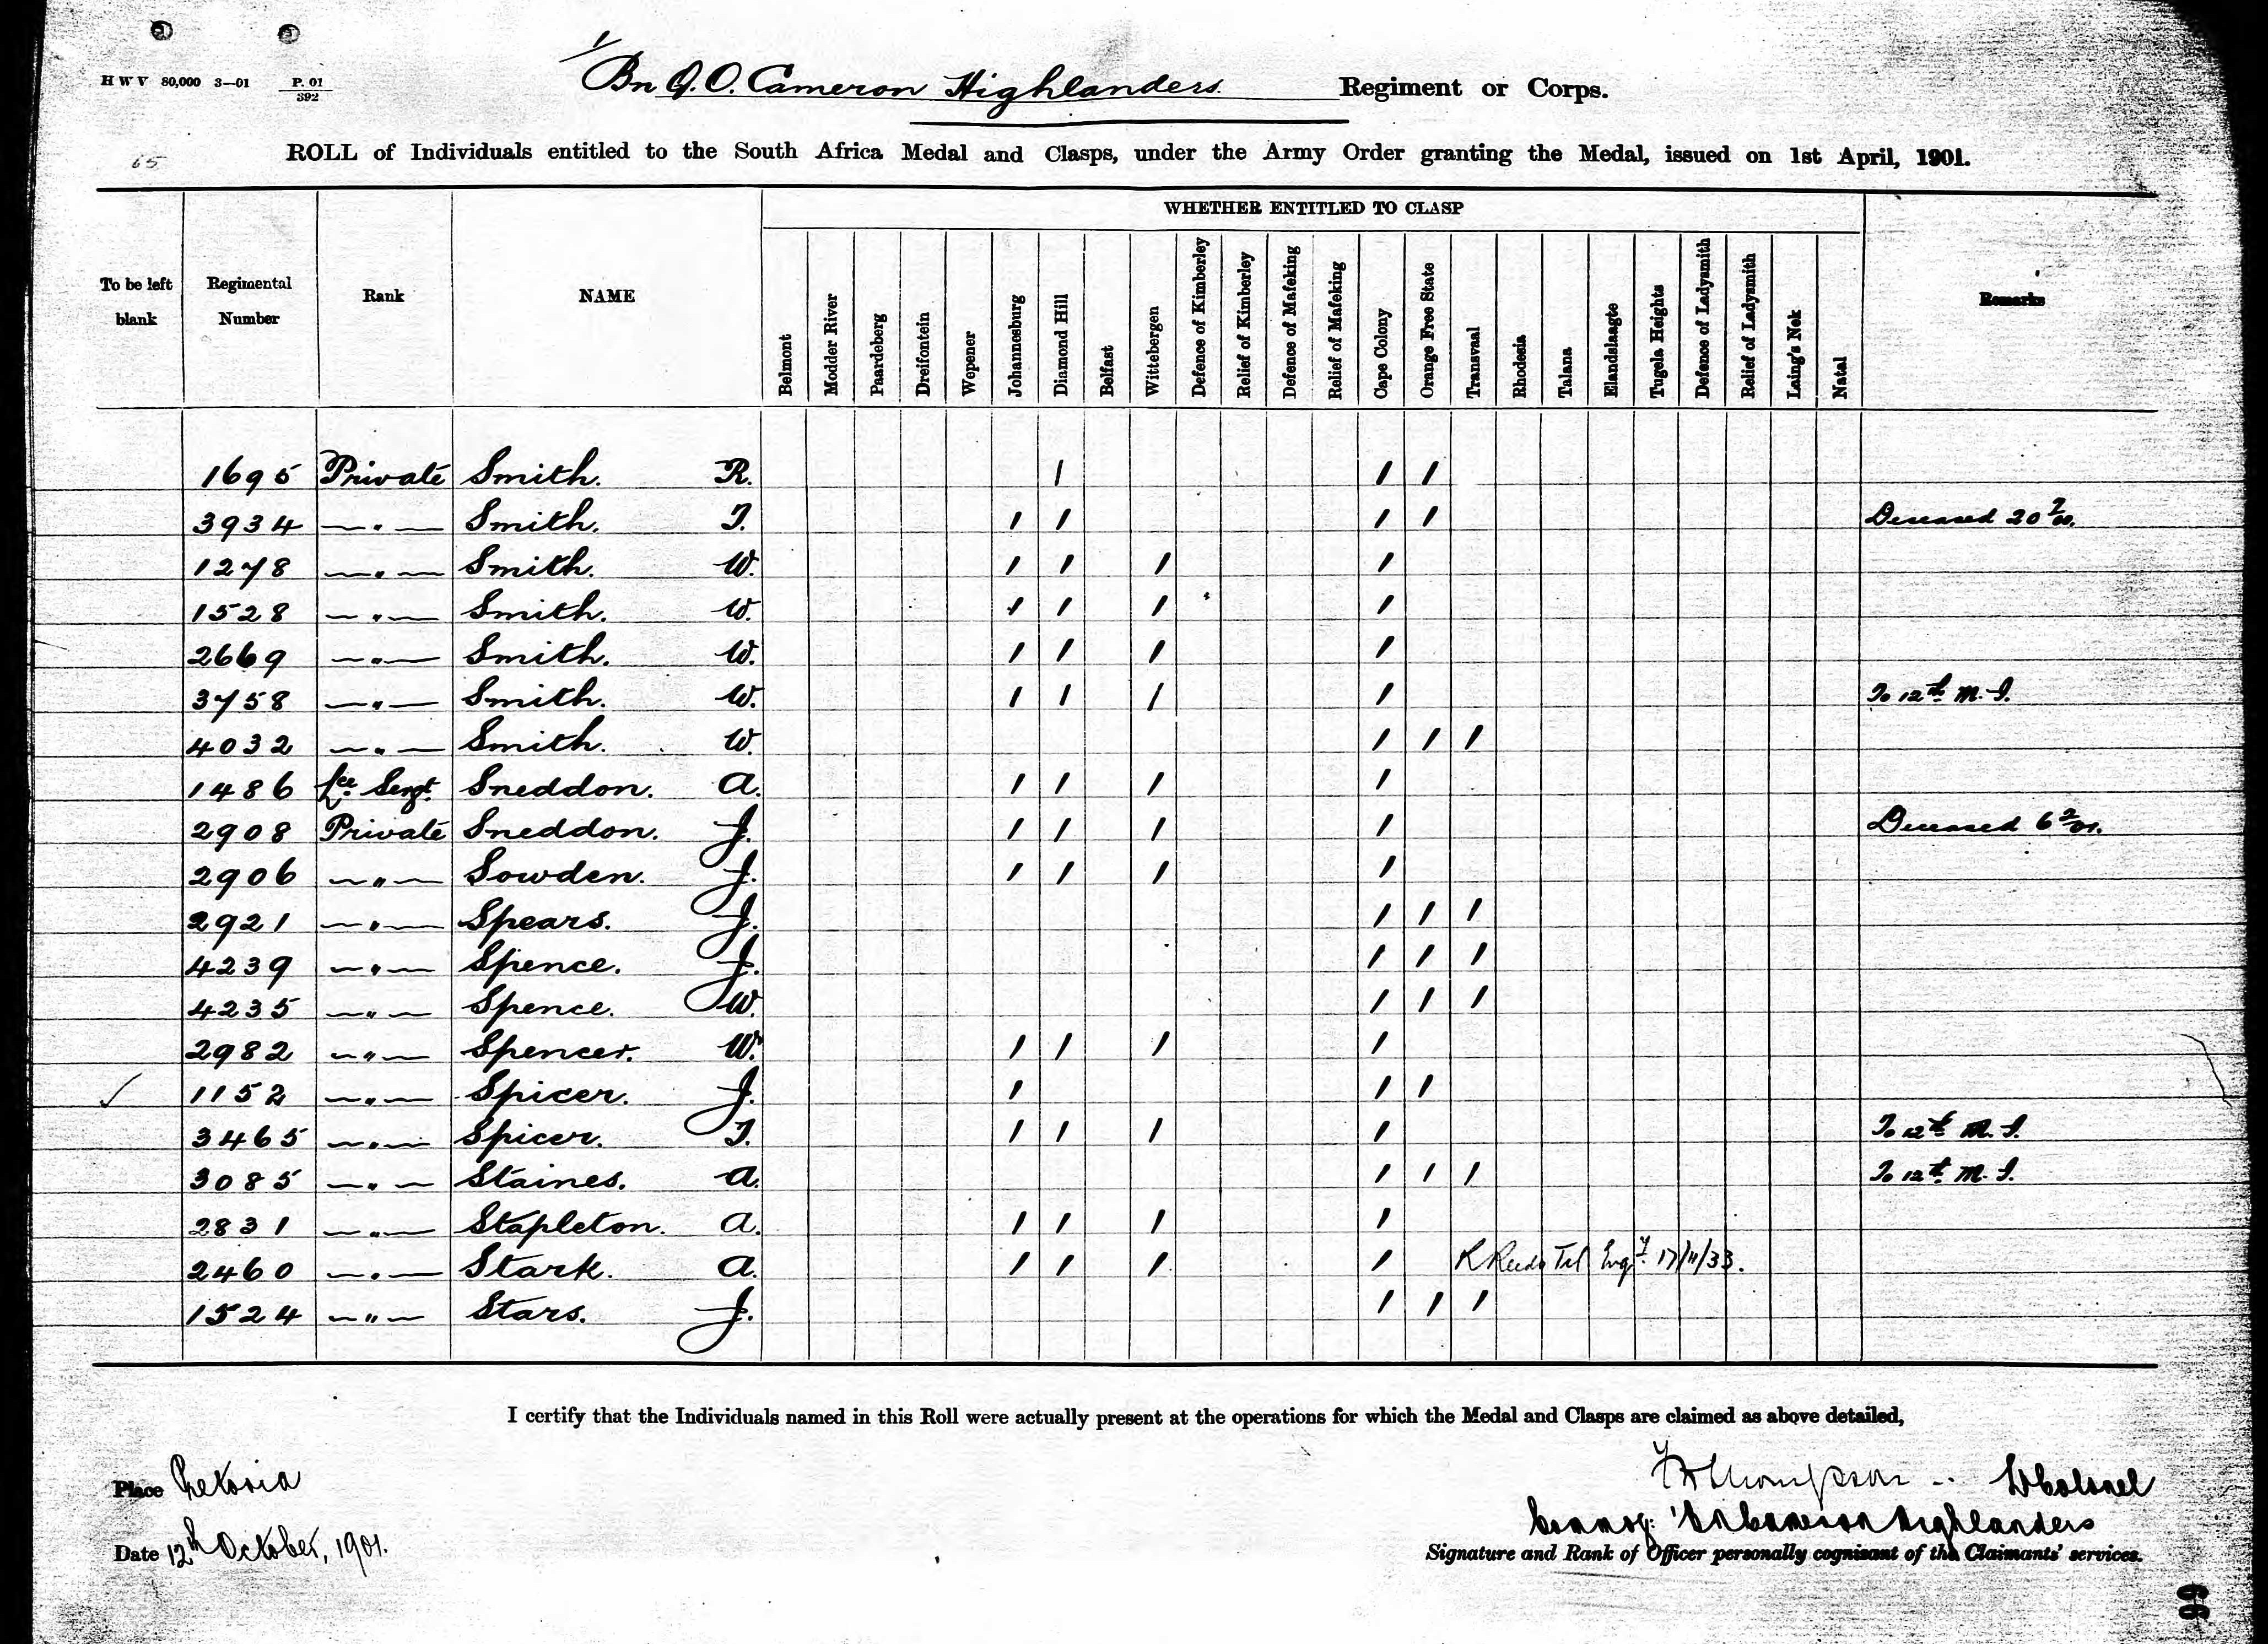 H W V 80,000 3—01 P. 01/392
1/ Bn Q. O. Cameron Highlanders. Regiment or Corps.
65
ROLL of Individuals entitled to the South Africa Medal and Clasps, under the Army Order granting the Medal, issued on 1st April, 1901.
WHETHER ENTITLED TO CLASP
To be left blank Regimental Number Rank NAME Belmont Modder River Paardeberg Dreifontein Wepener Johannesburg Diamond Hill Belfast Wittebergen Defence of Kimberley Relief of Kimberley Defence of Mafeking Relief of Mafeking Cape Colony Orange Free State Transvaal Rhodesia Talana Elandslaagte Tugela Heights Defence of Ladysmith Relief of Ladysmith Laing's Nek Natal Remarks
1695 Private Smith. R. / / /
3934 —„— Smith. T. / / / / Deceased 20 7/00.
1278 —„— Smith. W. / / / /
1528 —„— Smith. W. / / / /
2669 —„— Smith. W. / / / /
3758 —„— Smith. W. / / / / To 12th M. I.
4032 —„— Smith. W. / / /
1486 Lce Sergt. Sneddon. A. / / / /
2908 Private Sneddon. J. / / / / Deceased 6 2/01.
2906 —„— Sowden. J. / / / /
2921 —„— Spears. J. / / /
4239 —„— Spence. J. / / /
4235 —„— Spence. W. / / /
2982 —„— Spencer. W. / / / /
✓ 1152 —„— Spicer. J. / / /
3465 —„— Spicer. T. / / / / To 12th M. I.
3085 —„— Staines. A. / / / To 12th M. I.
2831 —„— Stapleton. A. / / / /
2460 —„— Stark. A. / / / / Tel Enqy. 17/11/33.
1524 —„— Stars. J. / / /
I certify that the Individuals named in this Roll were actually present at the operations for which the Medal and Clasps are claimed as above detailed,
Place Pretoria
Thompson Lt Colonel
Commdg. 1 Bn Cameron Highlanders
Date 12th October, 1901.
Signature and Rank of Officer personally cognisant of the Claimants' services.
66